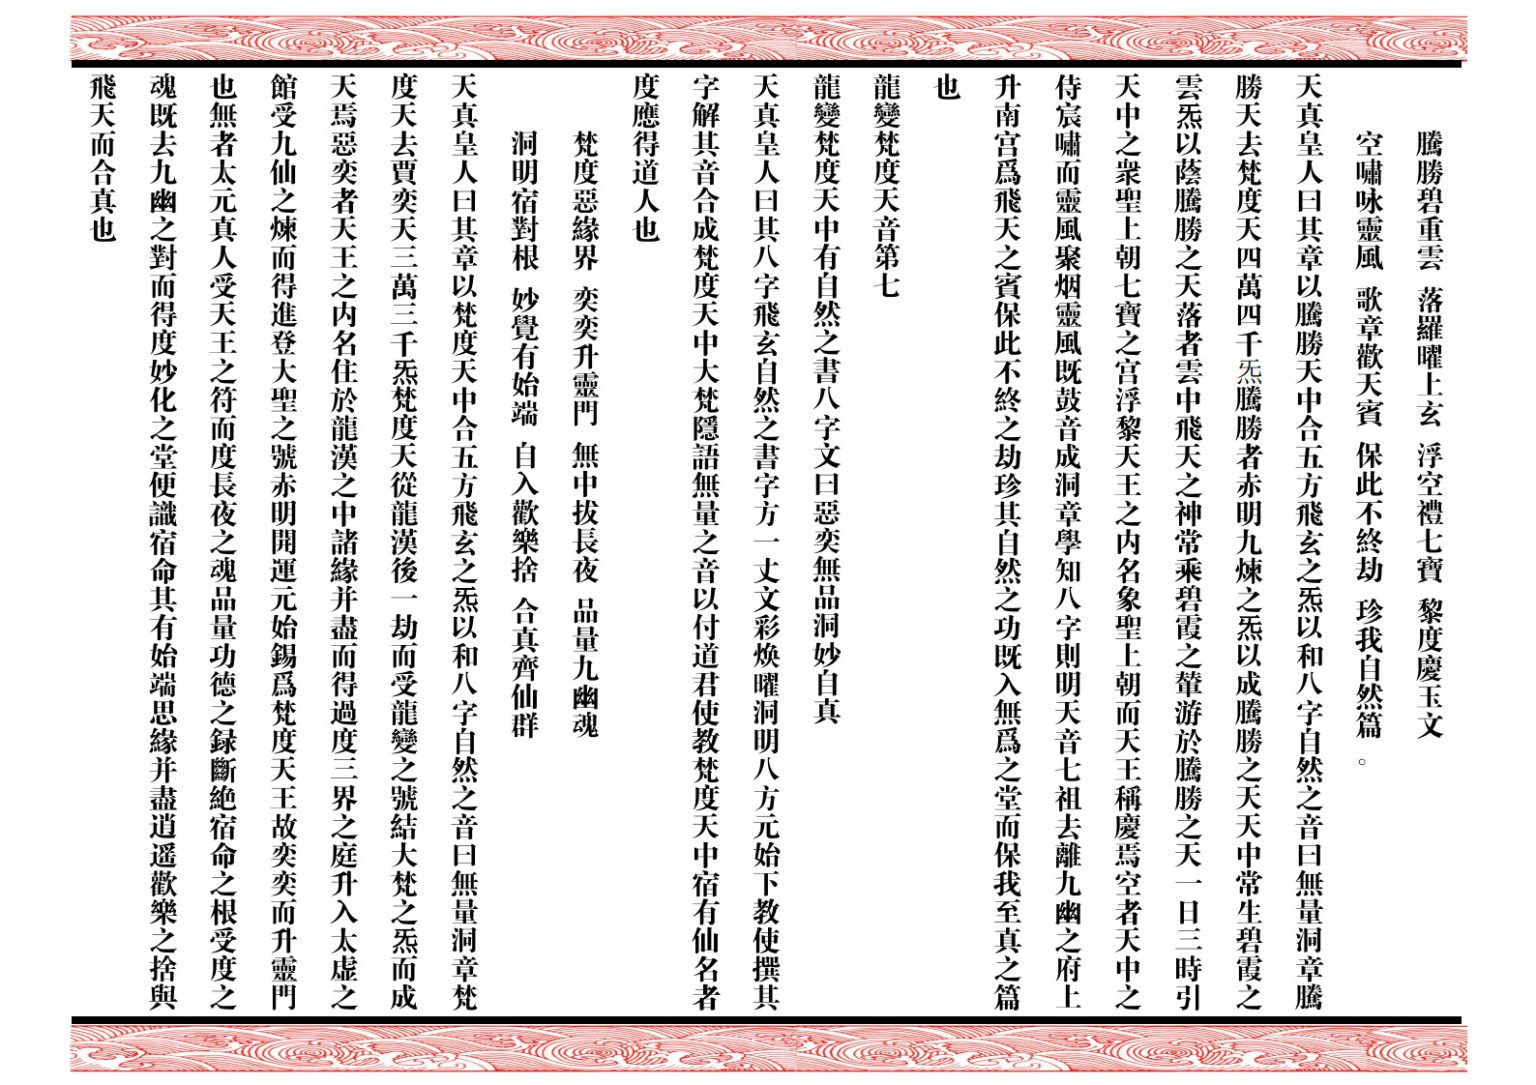 騰勝碧重雲 落羅曜上玄 浮空禮七寶 黎度慶玉文
空嘯咏靈風 歌章歡天賓 保此不終劫 珍我自然篇。
天真皇人曰其章以騰勝天中合五方飛玄之炁以和八字自然之音曰無量洞章騰
勝天去梵度天四萬四千炁騰勝者赤明九煉之炁以成騰勝之天天中常生碧霞之
雲炁以蔭騰勝之天落者雲中飛天之神常乘碧霞之輦游於騰勝之天一日三時引
天中之衆聖上朝七寶之宫浮黎天王之内名象聖上朝而天王稱慶焉空者天中之
侍宸嘯而靈風聚烟靈風既鼓音成洞章學知八字則明天音七祖去離九幽之府上
升南宫爲飛天之賓保此不終之劫珍其自然之功既入無爲之堂而保我至真之篇
也
龍變梵度天音第七
龍變梵度天中有自然之書八字文曰惡奕無品洞妙自真
天真皇人曰其八字飛玄自然之書字方一丈文彩焕曜洞明八方元始下教使撰其
字解其音合成梵度天中大梵隱語無量之音以付道君使教梵度天中宿有仙名者
度應得道人也
梵度惡緣界 奕奕升靈門 無中拔長夜 品量九幽魂
洞明宿對根 妙覺有始端 自入歡樂捨 合真齊仙群
天真皇人曰其章以梵度天中合五方飛玄之炁以和八字自然之音曰無量洞章梵
度天去賈奕天三萬三千炁梵度天從龍漢後一劫而受龍變之號結大梵之炁而成
天焉惡奕者天王之内名住於龍漢之中諸緣并盡而得過度三界之庭升入太虚之
館受九仙之煉而得進登大聖之號赤明開運元始錫爲梵度天王故奕奕而升靈門
也無者太元真人受天王之符而度長夜之魂品量功德之録斷絶宿命之根受度之
魂既去九幽之對而得度妙化之堂便識宿命其有始端思緣并盡逍遥歡樂之捨與
飛天而合真也